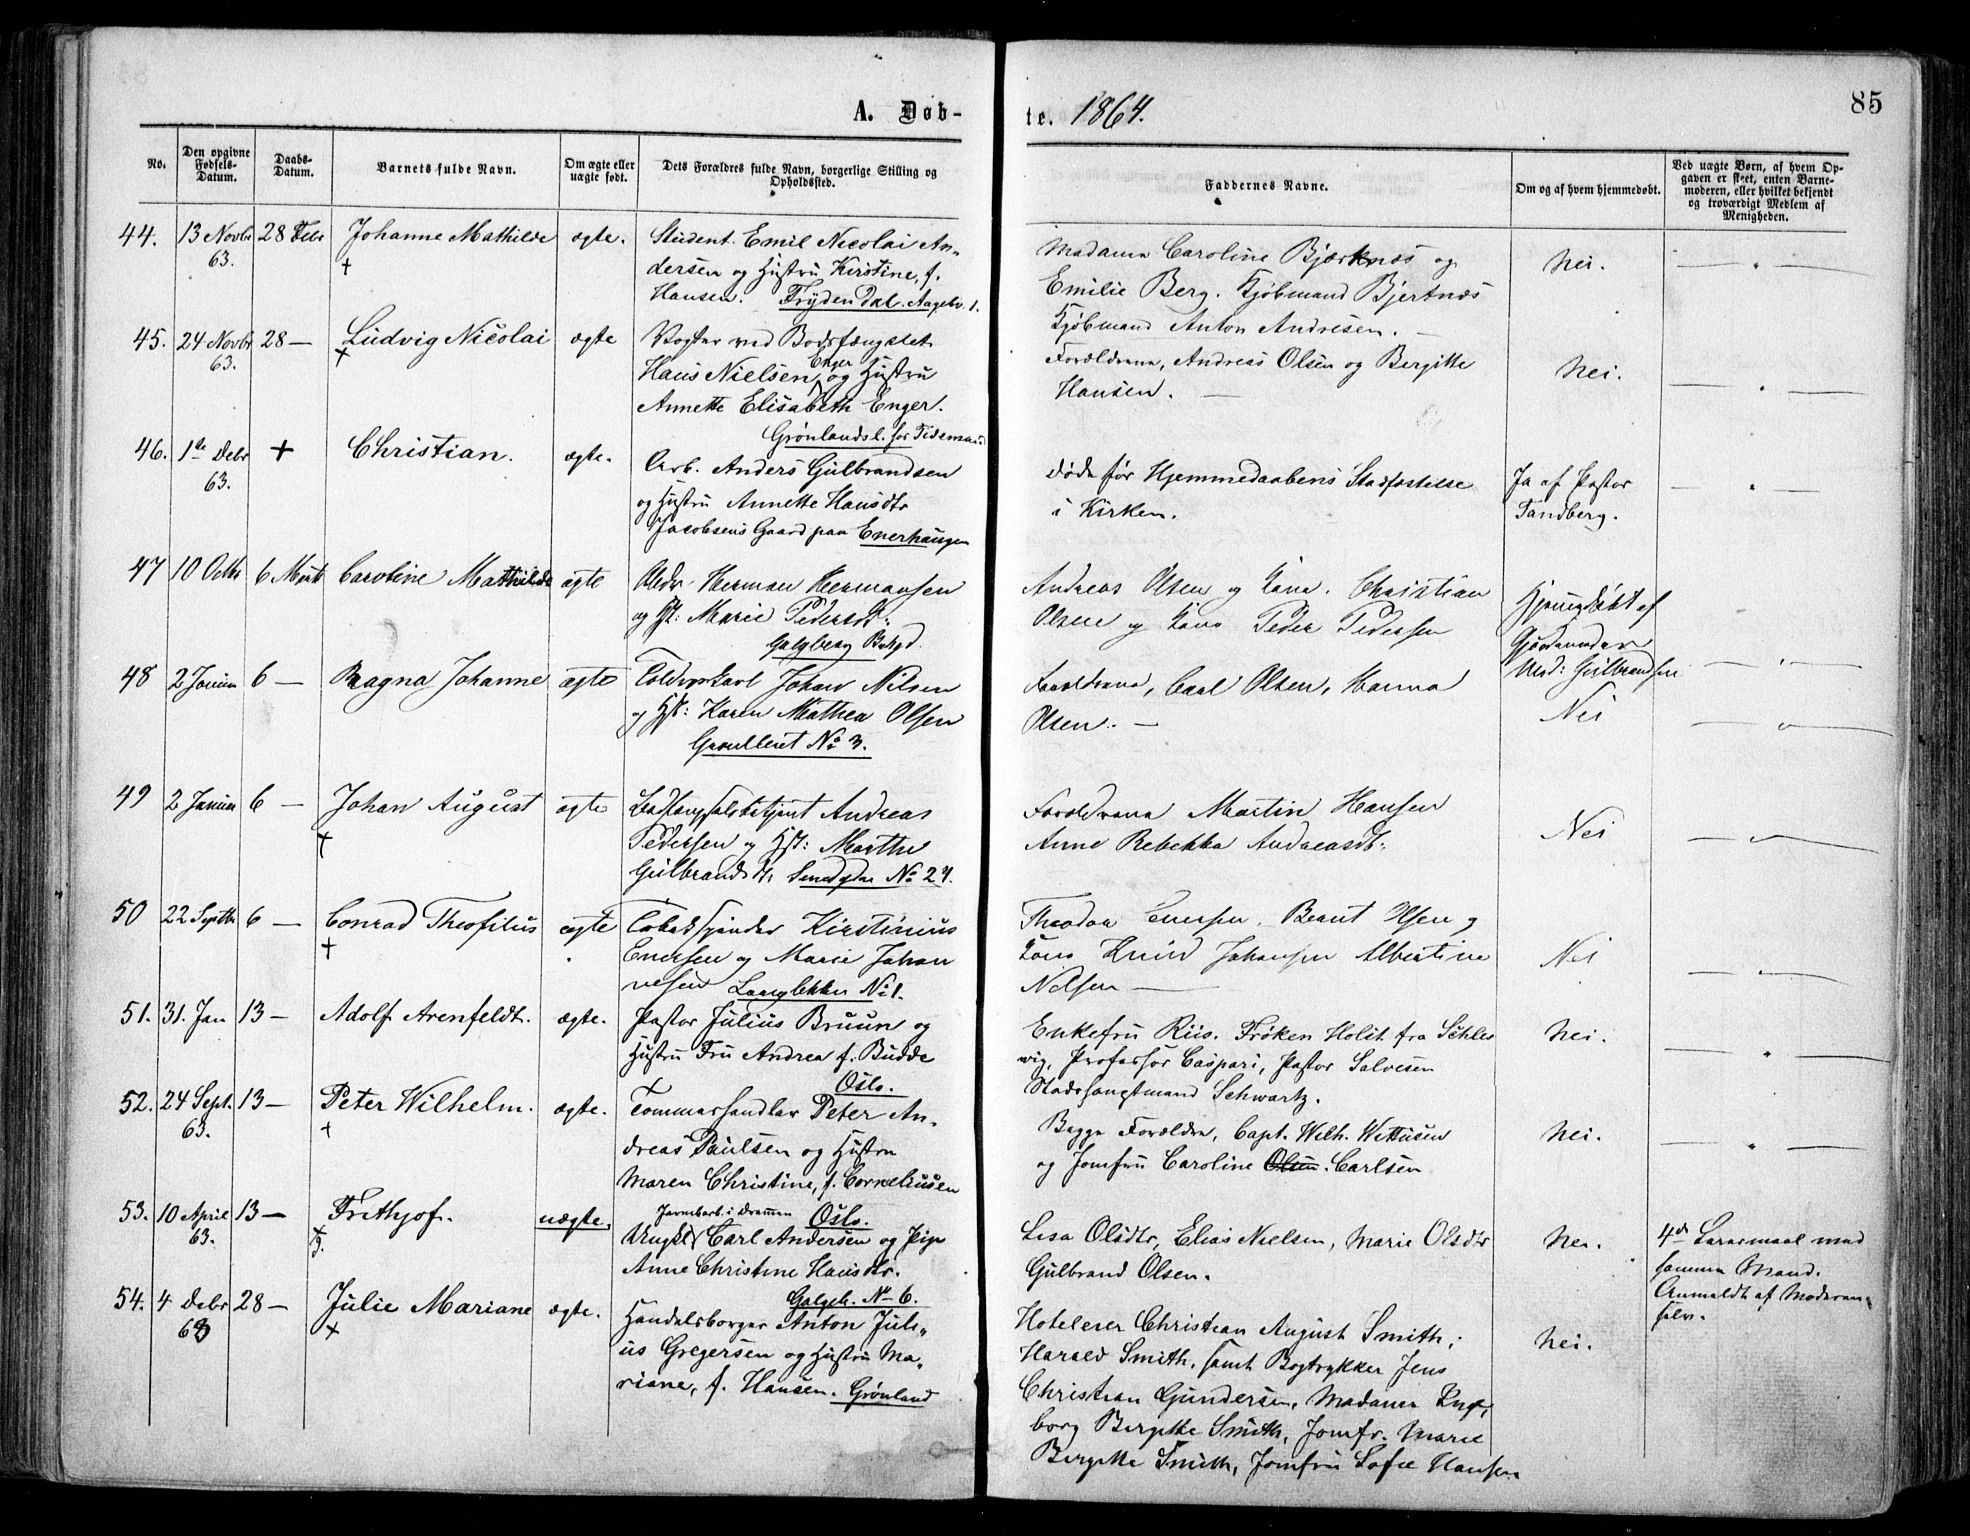 A. Døb-
te. 1864.
85
No.
Den opgivne Fødsels-Datum.
Daabs-Datum.
Barnets fulde Navn.
Om ægte eller uægte født.
Dets Forældres fulde Navn, borgerlige Stilling og Opholdssted.
Faddernes Navne.
Om og af hvem hjemmedøbt.
Ved uægte Børn, af hvem Opgaven er skeet, enten Barnemoderen, eller hvilket bekjendt og troværdigt Medlem af Menigheden.
44. 13 Novbr 63. 28 Febr Johanne Mathilde + ægte.
Student. Emil Nicolai An-
dersen og Hustru Kirstine, f.
Hansen. Frydendal. Aagebv. 1.
Madama Caroline Bjærknæs og
Emilie Berg. Kjøbmand Bjertnæs
Kjøbmand Anton Andresen. —
Nei.
45. 24 Novbr 63. 28 — Ludvig Nicolai + ægte
Vogter ved Bodsfængslet
Hans Nielsen Enger og Hustru
Annette Elisabeth Enger.
Grønlandsl. for Tidemand
Forældrene, Andreas Olsen og Bergitte
Hansen. —
Nei.
46. 1ste Debr 63. + Christian. ægte.
Arb. Anders Gulbrandsen
og Hustru Annette Hansdtr
Jacobsens Gaard paa Enerhaugen
døde før Hjemmedaabens Stadfæstelse
i Kirken.
Ja af Pastor
Tandberg.
47 10 Octbr 6 Marts Caroline Mathilde ægte
Herman Hermansen
og Hst: Marie Pedersdt:
Galgberg
Andreas Olsen og Kone. Christian
Olsen og Kone Peder Pedersen
Hjemmedøbt af
Gjordemoder
Mad: Gulbrandsen
48 2 Januar 6 — Ragna Johanne ægte
Toldopskarl Johan Nilsen
og Hst: Karen Mathea Olsen
Grønlleret No 3.
Forældrene, Carl Olsen, Hanna
Olsen. —
Nei
49 2 Januar 6 — Johan August + ægte
Andreas
Pedersen og Hst: Marthe
Gulbrandsdt. No 27.
Forældrene Martin Hansen
Anne Rebekka Andreasdt:
Nei
50 22 Septbr 6 — Conrad Theofilus + ægte
Tobakspinder Kirstinius
Enersen og Marie Johan
nesen Langløkken No 1.
Theodor Enersen. Bernt Olsen og
Kone Knud Johansen Albertine
Nelsen —
Nei
51. 31. Jan 13 — Adolf Arenfeldt. ægte.
Pastor Julius Bruun og
Hustru Fru Andrea f. Budde
Oslo.
Enkefru Riis. Frøken Holst fra Schles
wig, Professor Caspari, Pastor Salvesen
Stadshauptmand Schwartz.
Nei.
52. 24 Sept. 63. 13 — Peter Wilhelm. + ægte.
Tommerhandler Peter An-
dreas Paulsen og Hustru
Maren Christine, f. Corneliusen
Oslo.
Begge Forældre, Capt. Wilh. Wettusen
og Jomfru Caroline Olsen. Carlsen
Nei.
53. 10 April 63. 13 — Frithjof. uægte.
Jernbarb. i Drammen
Ungkl Carl Andersen og Pige
Anne Christine Hansdtr.
Galgeb. No 6.
Lisa Olsdtr, Elias Nielsen, Marie Olsdtr
Gulbrand Olsen.
Nei.
4de Leiermaal med
samme Mand.
Anmeldt af Moderen
selv.
54. 4 Debr 63 28 — Julie Mariane + ægte.
Handelsborger Anton Juli-
us Gregersen og Hustru Ma-
riane, f. Hansen. Grønland
Hotelerer Christian August Smith,
Harald Smith, samt Bogtrykker Jens
Christian Gundersen, Madama Inge-
borg Bergitte Smith, Jomfr. Marie
Bergitte Smith, Jomfru Sofie Hansen
Nei.